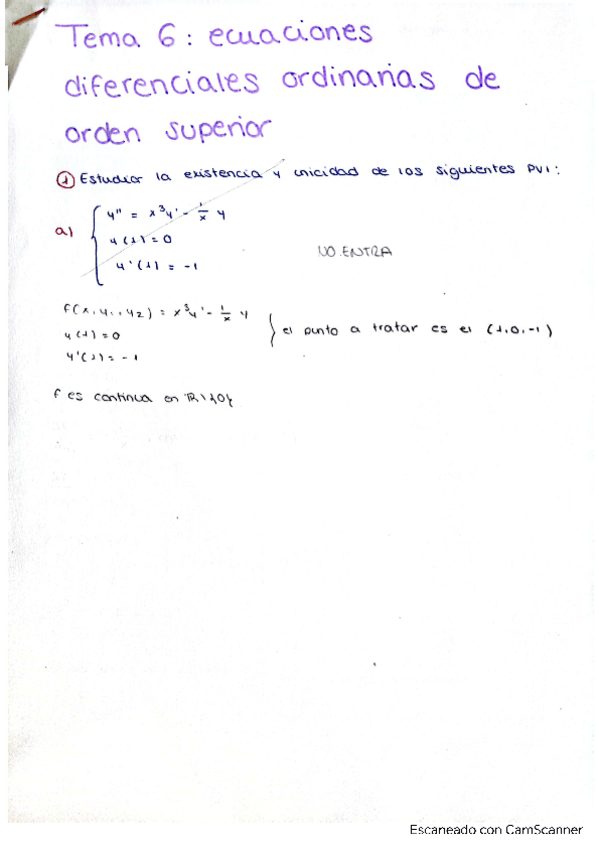 Tema 6: ecuaciones
diferenciales ordinarias de
orden superior
① Estudiar la existencia y unicidad de los siguientes PVI:
a) { y'' = x³y' - 1/x y
y(1) = 0
y'(1) = -1
NO ENTRA
f(x, y₁, y₂) = x³y' - 1/x y
y(1) = 0
y'(1) = -1
} el punto a tratar es el (1,0,-1)
f es continua en ℝ\{0}
Escaneado con CamScanner